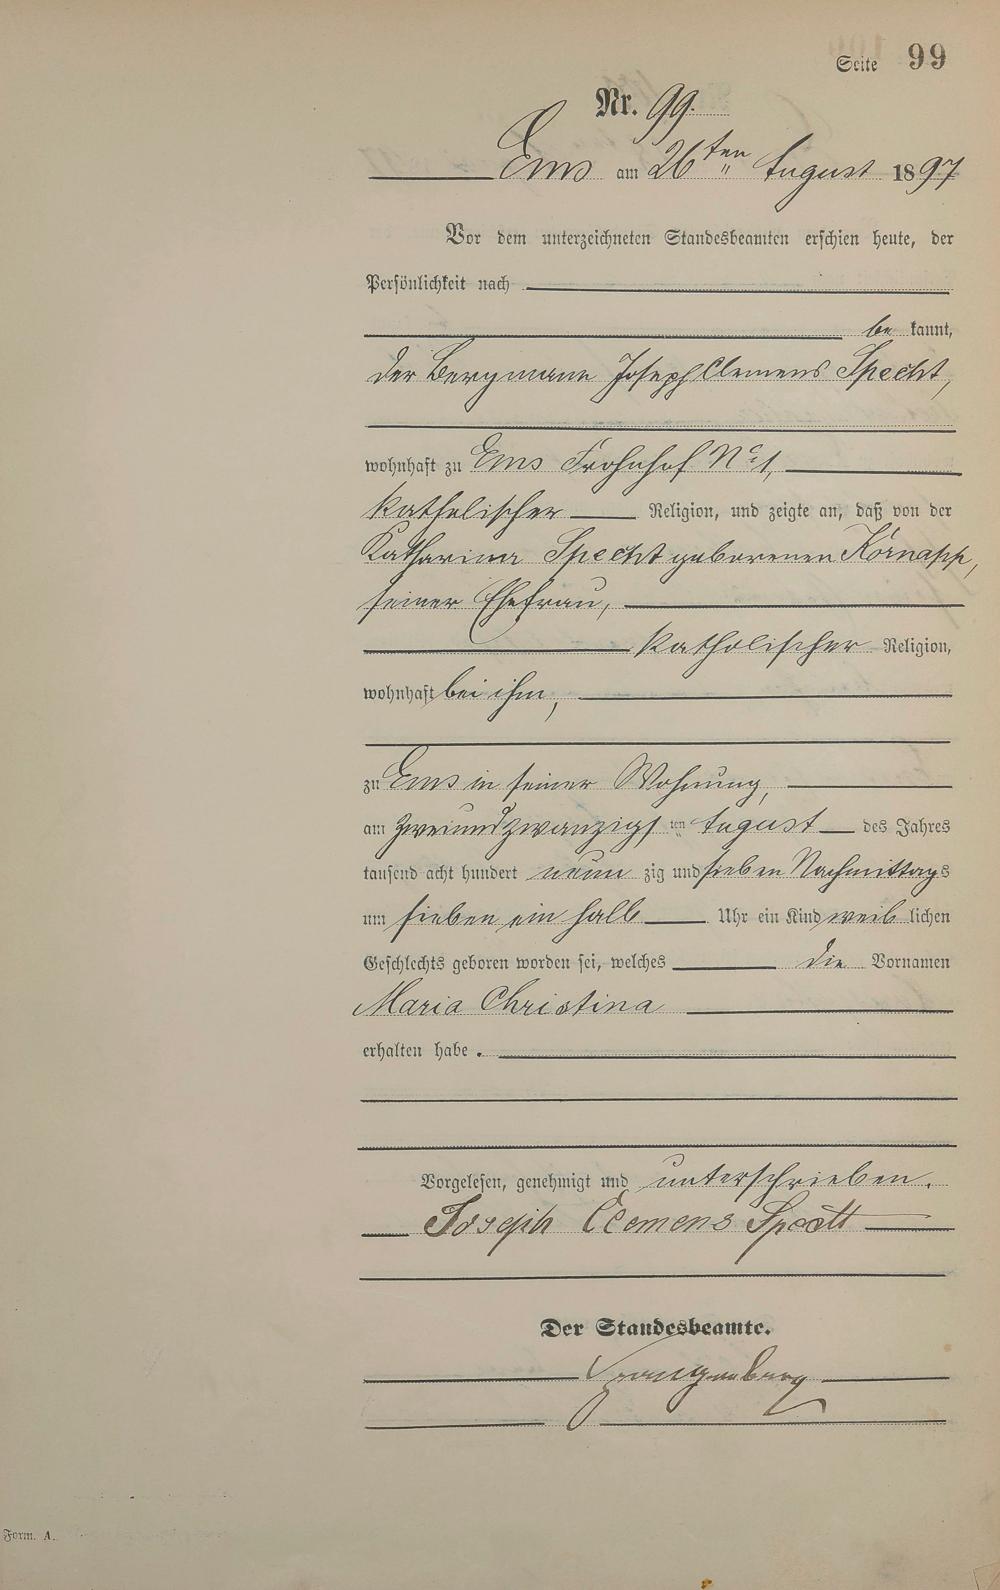 Seite 99
Nr. 99.
Ems am 26ten August 1897
Vor dem unterzeichneten Standesbeamten erschien heute, der
Persönlichkeit nach
be kannt,
der Bergmann Joseph Clemens Specht,
wohnhaft zu Ems Frohnhof No 1,
katholischer Religion, und zeigte an, daß von der
Katharina Specht geborenen
seiner Ehefrau,
katholischer Religion,
wohnhaft bei ihm,
zu Ems in seiner Wohnung,
am zweiundzwanzigsten August des Jahres
tausend acht hundert neun zig und sieben Nachmittags
um sieben ein halb Uhr ein Kind weib lichen
Geschlechts geboren worden sei, welches die Vornamen
Maria Christina
erhalten habe.
Vorgelesen, genehmigt und unterschrieben.
Joseph Clemens Specht
Der Standesbeamte.
Form. A.